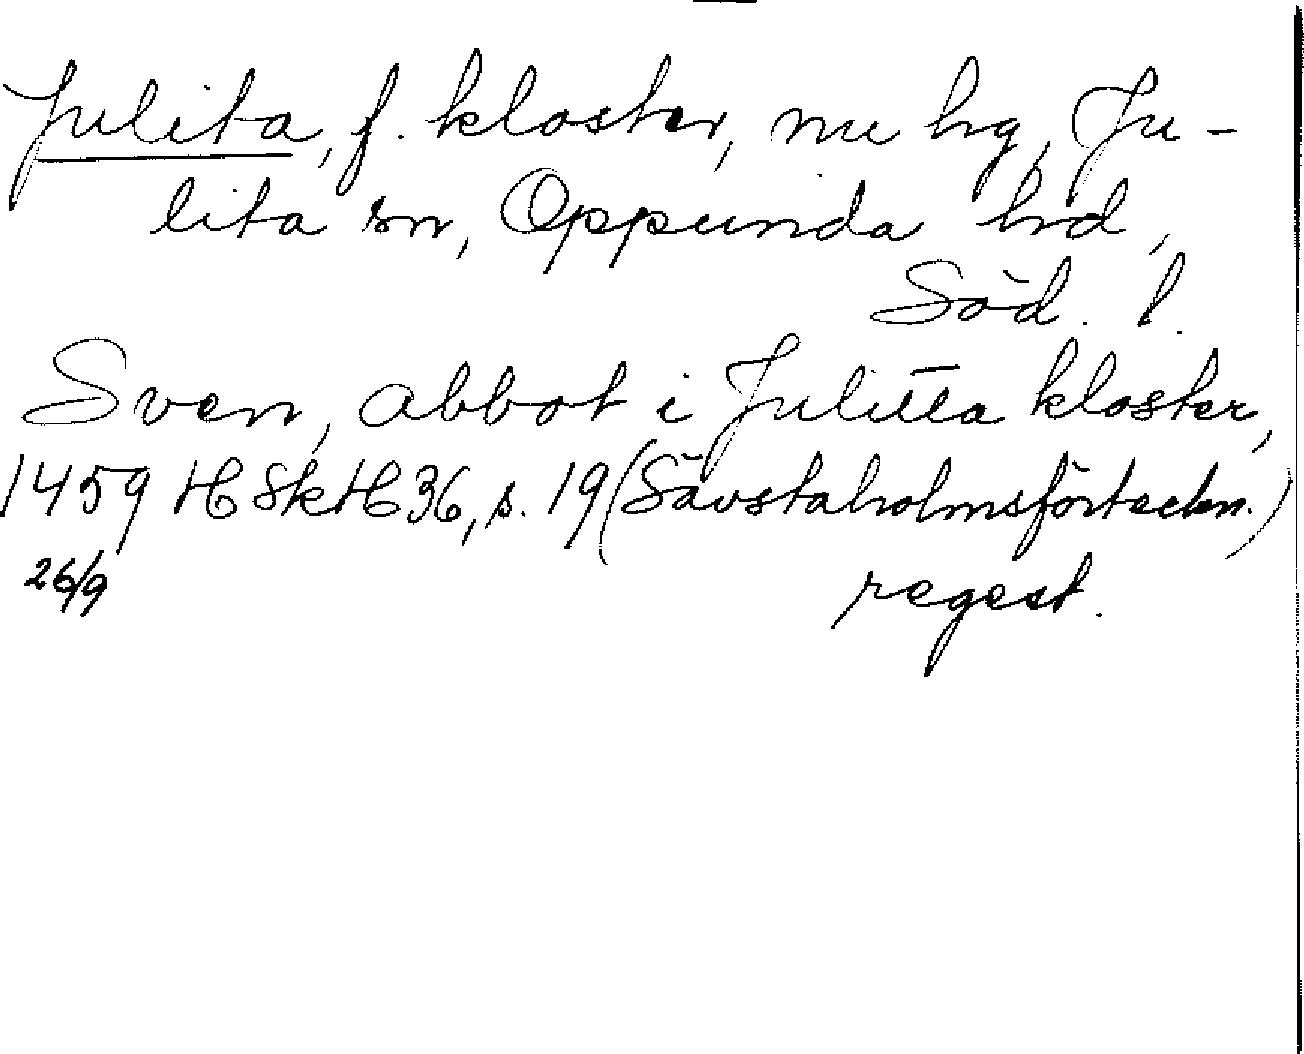 Julita, f. kloster, nu hg, Ju-
lita sn, Oppunda hd,
Söd. l.
Sven, abbot i Julitta kloster,
1459 HSkH 36, s. 19 (Sävstaholmsförteckn.)
26/9 regest.